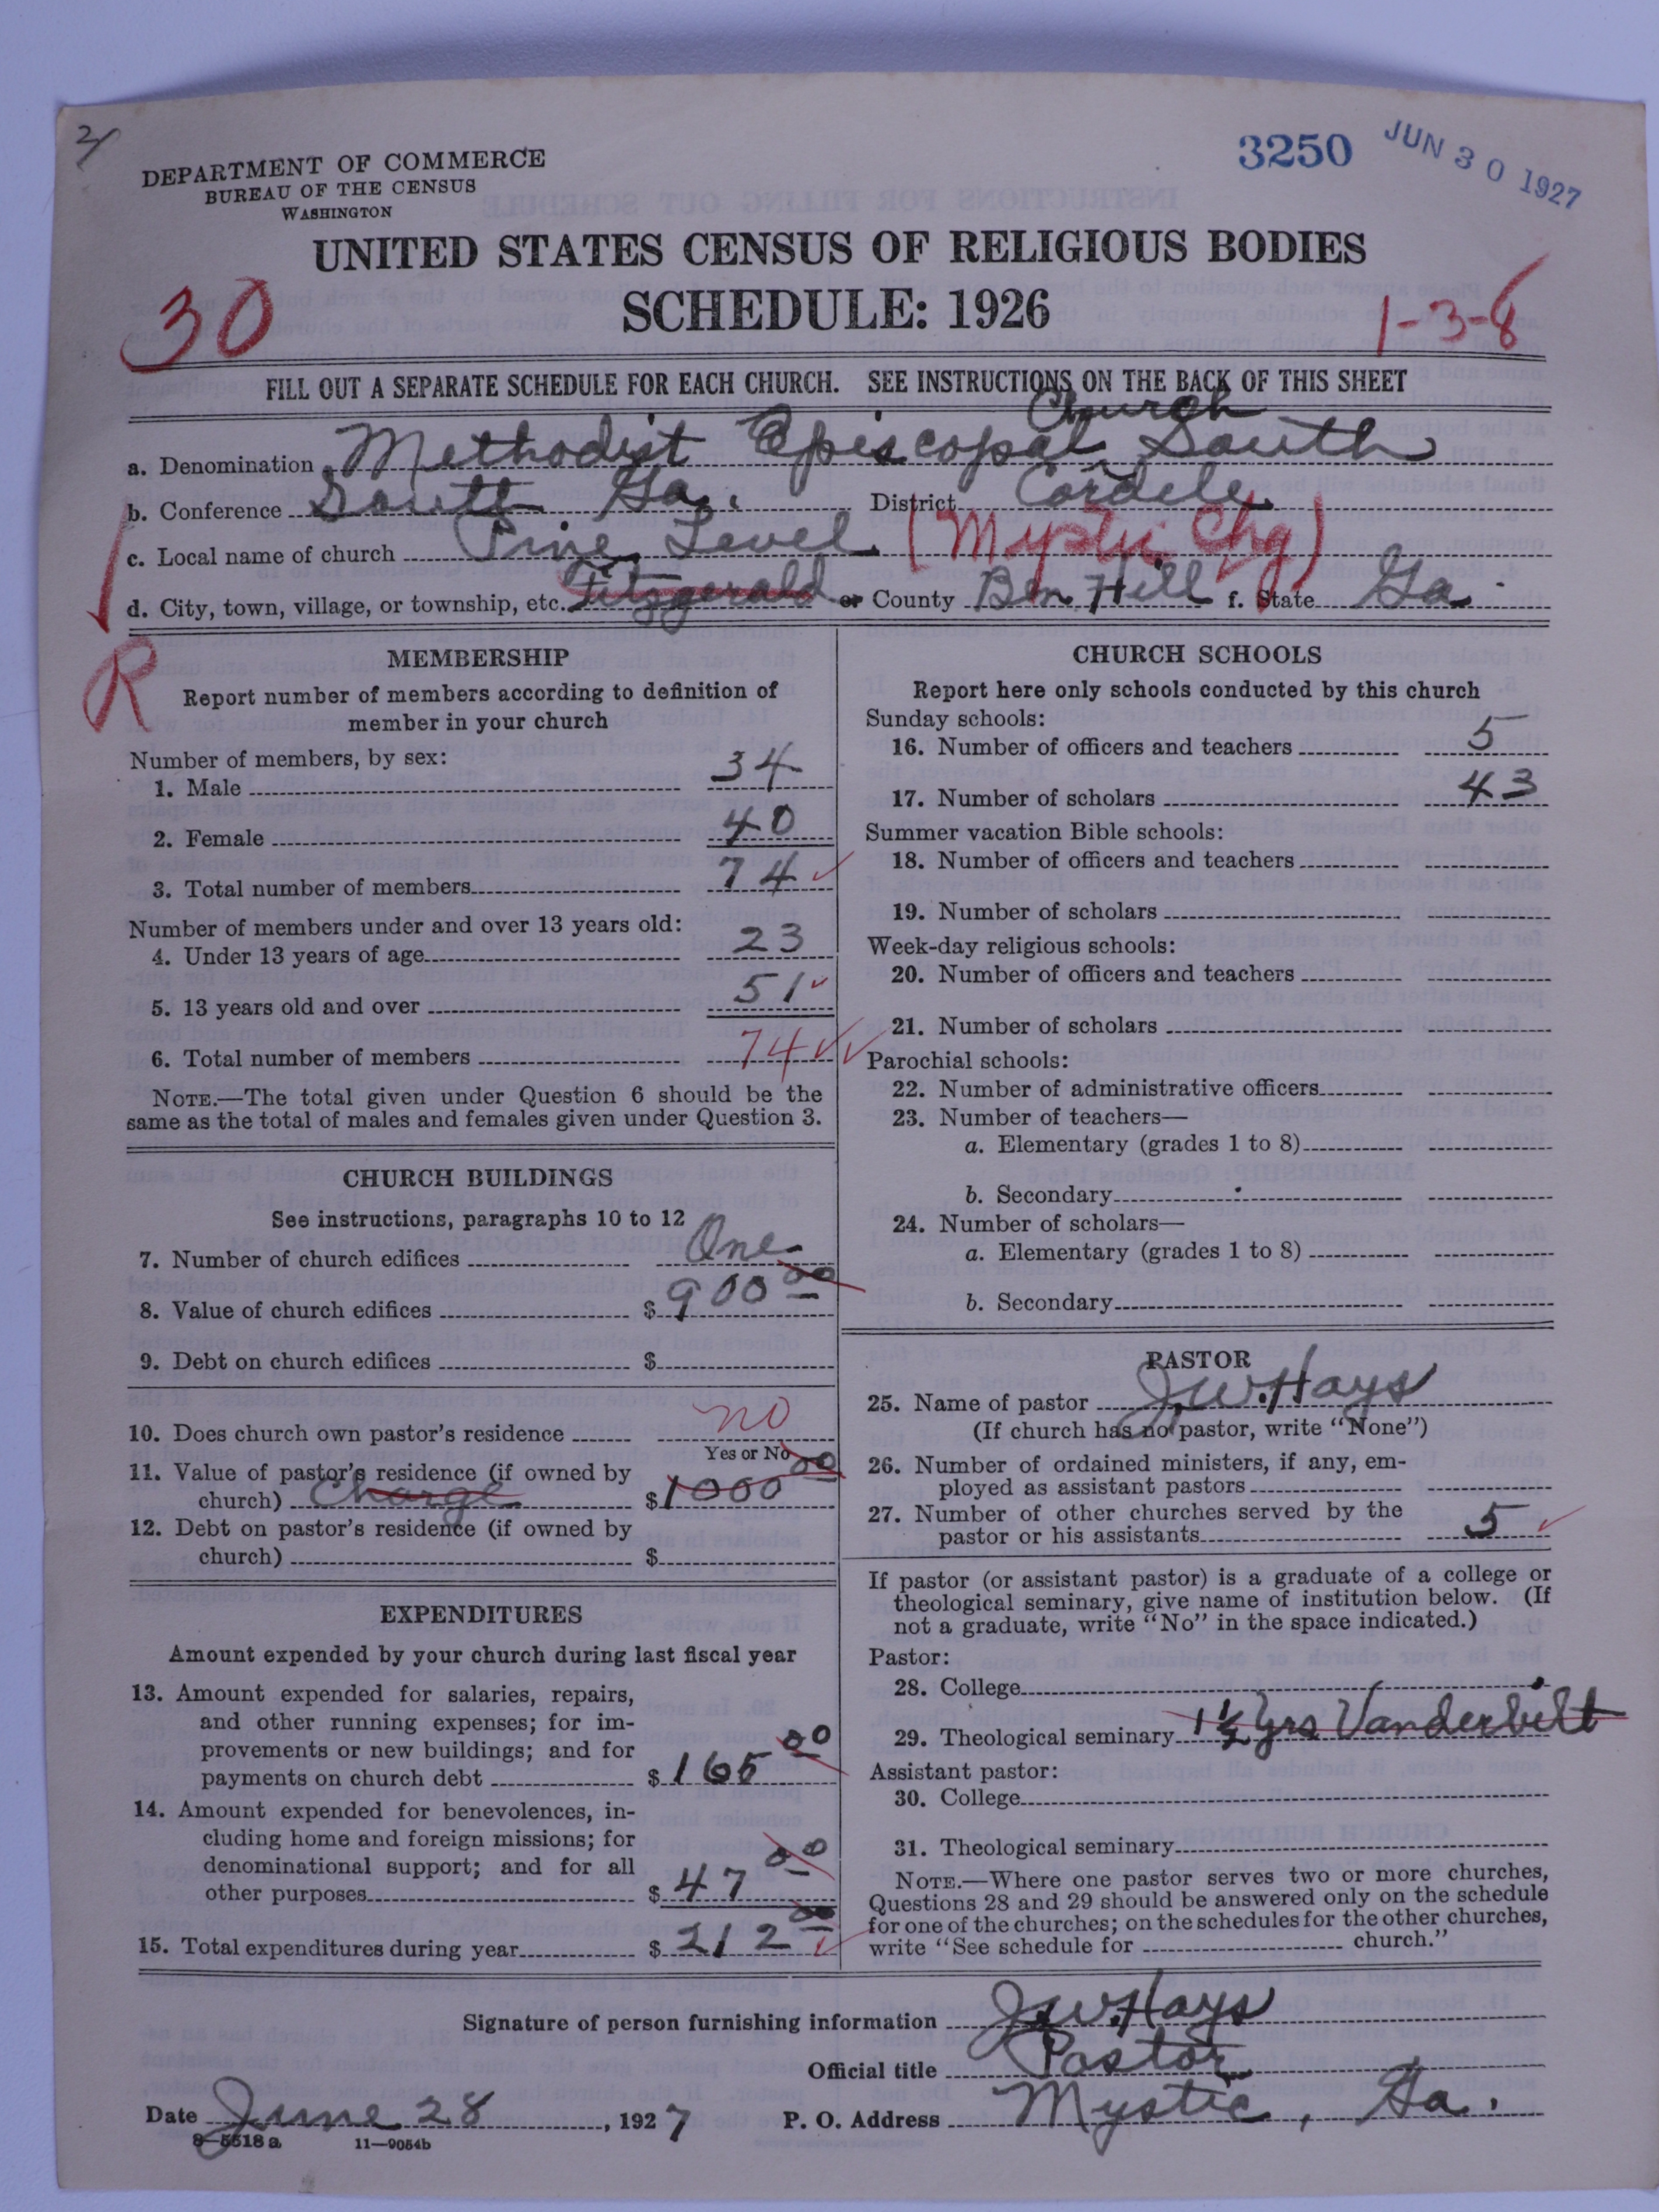 3250
JUN 30 1927
DEPARTMENT OF COMMERCE
BUREAU OF THE CENSUS
WASHINGTON
UNITED STATES CENSUS OF RELIGIOUS BODIES
SCHEDULE: 1926
30
1-3-6
FILL OUT A SEPARATE SCHEDULE FOR EACH CHURCH. SEE INSTRUCTIONS ON THE BACK OF THIS SHEET
Church
a. Denomination Methodist Episcopal South
b. Conference South Ga. District Cordele
c. Local name of church Pine Level (Mystic Chg)
d. City, town, village, or township, etc. Fitzgerald or County Ben Hill f. State Ga.
R
MEMBERSHIP
Report number of members according to definition of
member in your church
Number of members, by sex:
1. Male 34
2. Female 40
3. Total number of members 74
Number of members under and over 13 years old:
4. Under 13 years of age 23
5. 13 years old and over 51
6. Total number of members 74
NOTE.—The total given under Question 6 should be the
same as the total of males and females given under Question 3.
CHURCH BUILDINGS
See instructions, paragraphs 10 to 12
7. Number of church edifices One
8. Value of church edifices $ 900 00
9. Debt on church edifices $
10. Does church own pastor's residence no
Yes or No
11. Value of pastor's residence (if owned by
church) Charge $ 1000 00
12. Debt on pastor's residence (if owned by
church) $
EXPENDITURES
Amount expended by your church during last fiscal year
13. Amount expended for salaries, repairs,
and other running expenses; for im-
provements or new buildings; and for
payments on church debt $ 165 00
14. Amount expended for benevolences, in-
cluding home and foreign missions; for
denominational support; and for all
other purposes $ 47 00
15. Total expenditures during year $ 212 00
CHURCH SCHOOLS
Report here only schools conducted by this church
Sunday schools:
16. Number of officers and teachers 5
17. Number of scholars 43
Summer vacation Bible schools:
18. Number of officers and teachers
19. Number of scholars
Week-day religious schools:
20. Number of officers and teachers
21. Number of scholars
Parochial schools:
22. Number of administrative officers
23. Number of teachers—
a. Elementary (grades 1 to 8)
b. Secondary
24. Number of scholars—
a. Elementary (grades 1 to 8)
b. Secondary
PASTOR
25. Name of pastor J.W. Hays
(If church has no pastor, write "None")
26. Number of ordained ministers, if any, em-
ployed as assistant pastors
27. Number of other churches served by the
pastor or his assistants 5
If pastor (or assistant pastor) is a graduate of a college or
theological seminary, give name of institution below. (If
not a graduate, write "No" in the space indicated.)
Pastor:
28. College
29. Theological seminary 1½ yrs Vanderbilt
Assistant pastor:
30. College
31. Theological seminary
NOTE.—Where one pastor serves two or more churches,
Questions 28 and 29 should be answered only on the schedule
for one of the churches; on the schedules for the other churches,
write "See schedule for church."
Signature of person furnishing information J.W. Hays
Official title Pastor
Date June 28, 1927 P. O. Address Mystic, Ga.
8—5518 a 11—9054b